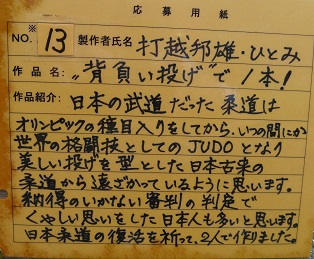 応募用紙
※
NO. 13 製作者氏名 打越邦雄・ひとみ
作品名: "背負い投げ"で1本!
作品紹介: 日本の武道だった柔道は
オリンピックの種目入りをしてから、いつの間にか
世界の格闘技としてのJUDOとなり
美しい投げを型とした日本古来の
柔道から遠ざかっているように思います。
納得のいかない審判の判定で
くやしい思いをした日本人も多いと思います。
日本柔道の復活を祈って、2人で作りました。